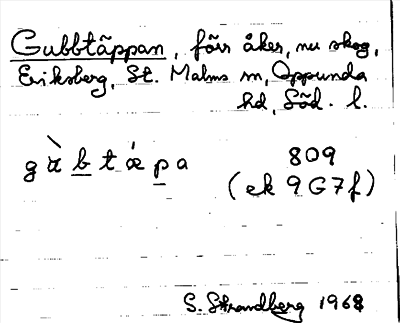 Gubbtäppan, förr åker, nu skog,
Eriksberg, St. Malms sn, Oppunda
hd, Söd. l.
gàbtǽpa 809
(ek 9G7f)
S. Strandberg 1968